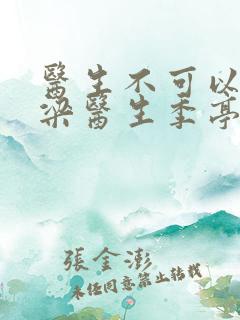 醫生不可以
梁醫生季亭
張金澎
未經同意禁止轉載